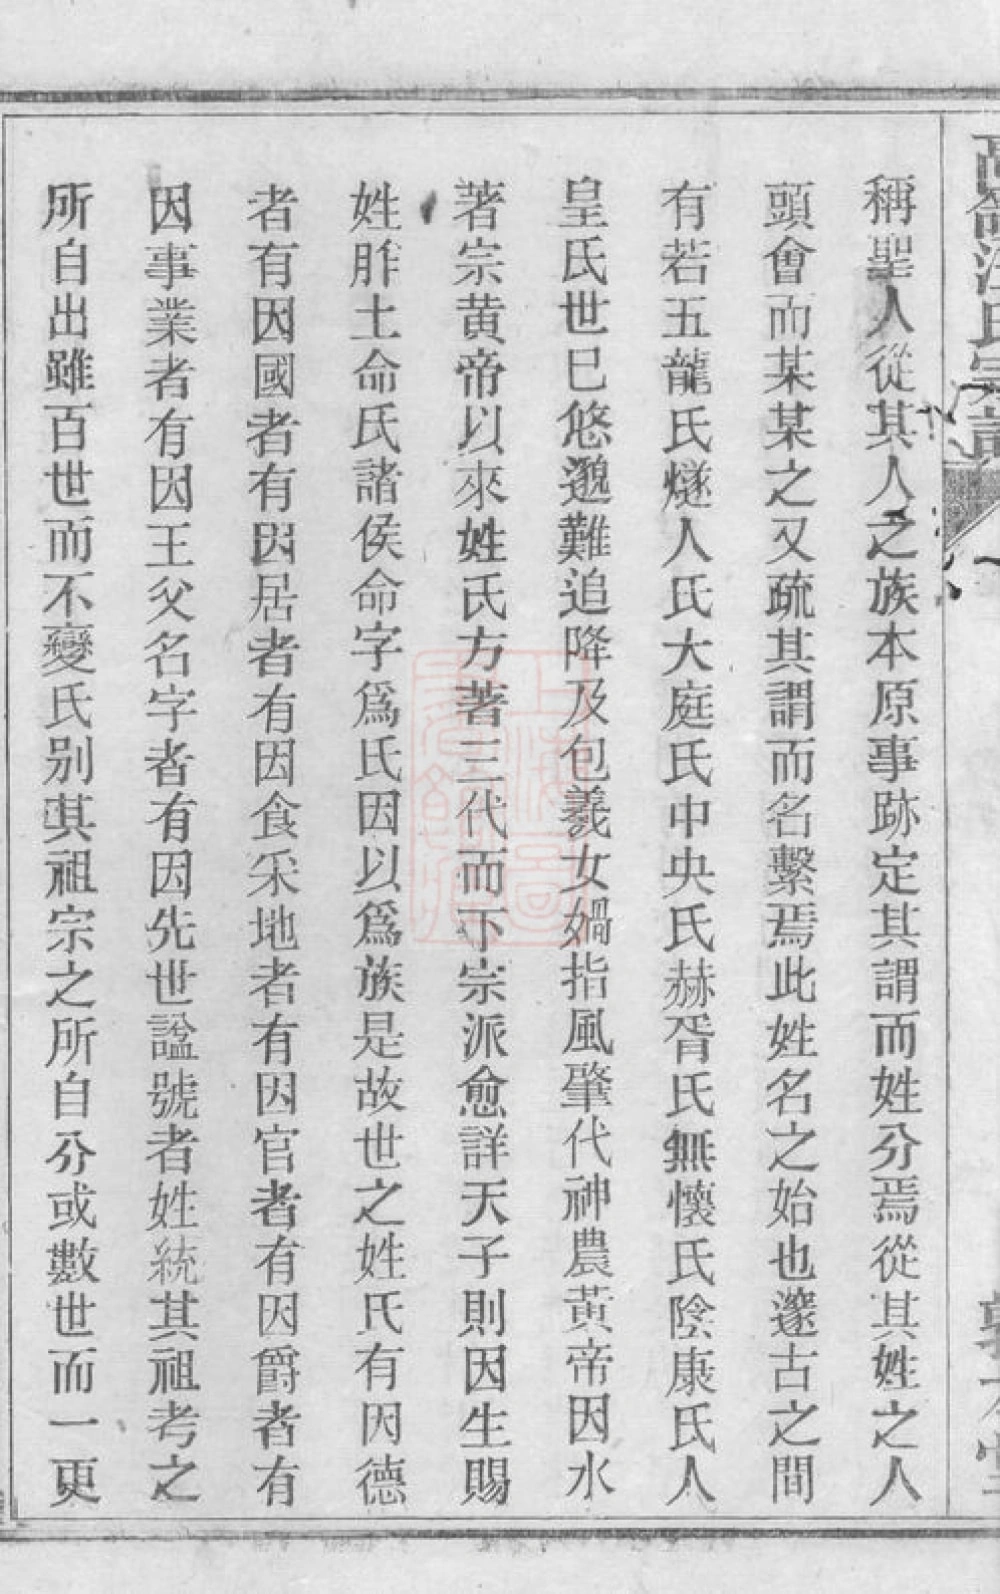 江氏宗譜
稱聖人從其人之族本原事跡定其謂而姓分焉從其姓之人
頭會而某某之又疏其謂而名繫焉此姓名之始也邃古之間
有若五龍氏燧人氏大庭氏中央氏赫胥氏無懷氏陰康氏人
皇氏世巳悠邈難追降及包羲女媧指風肇代神農黃帝因水
著宗黄帝以來姓氏方著三代而下宗派愈詳天子則因生賜
姓胙土命氏諸侯命字爲氏因以爲族是故世之姓氏有因德
者有因國者有因居者有因食采地者有因官者有因爵者有
因事業者有因王父名字者有因先世諡號者姓統其祖考之
所自出雖百世而不變氏别其祖宗之所自分或數世而一更
上海圖書館藏